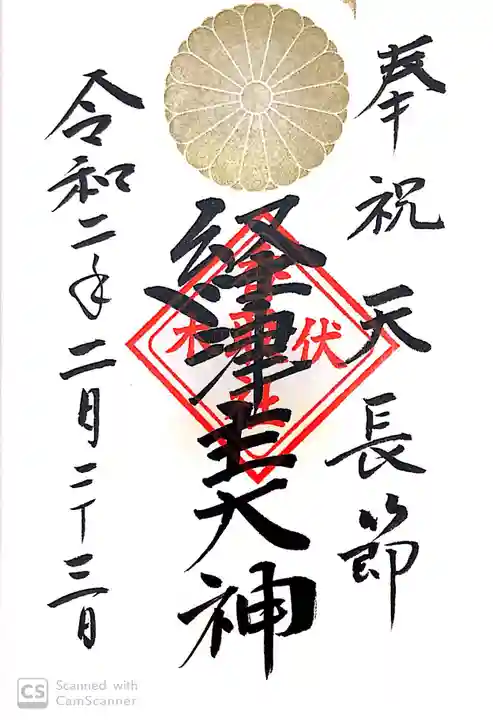 奉祝天長節
経津主大神
伏
木
社
令和二年二月二十三日
CS
Scanned with
CamScanner